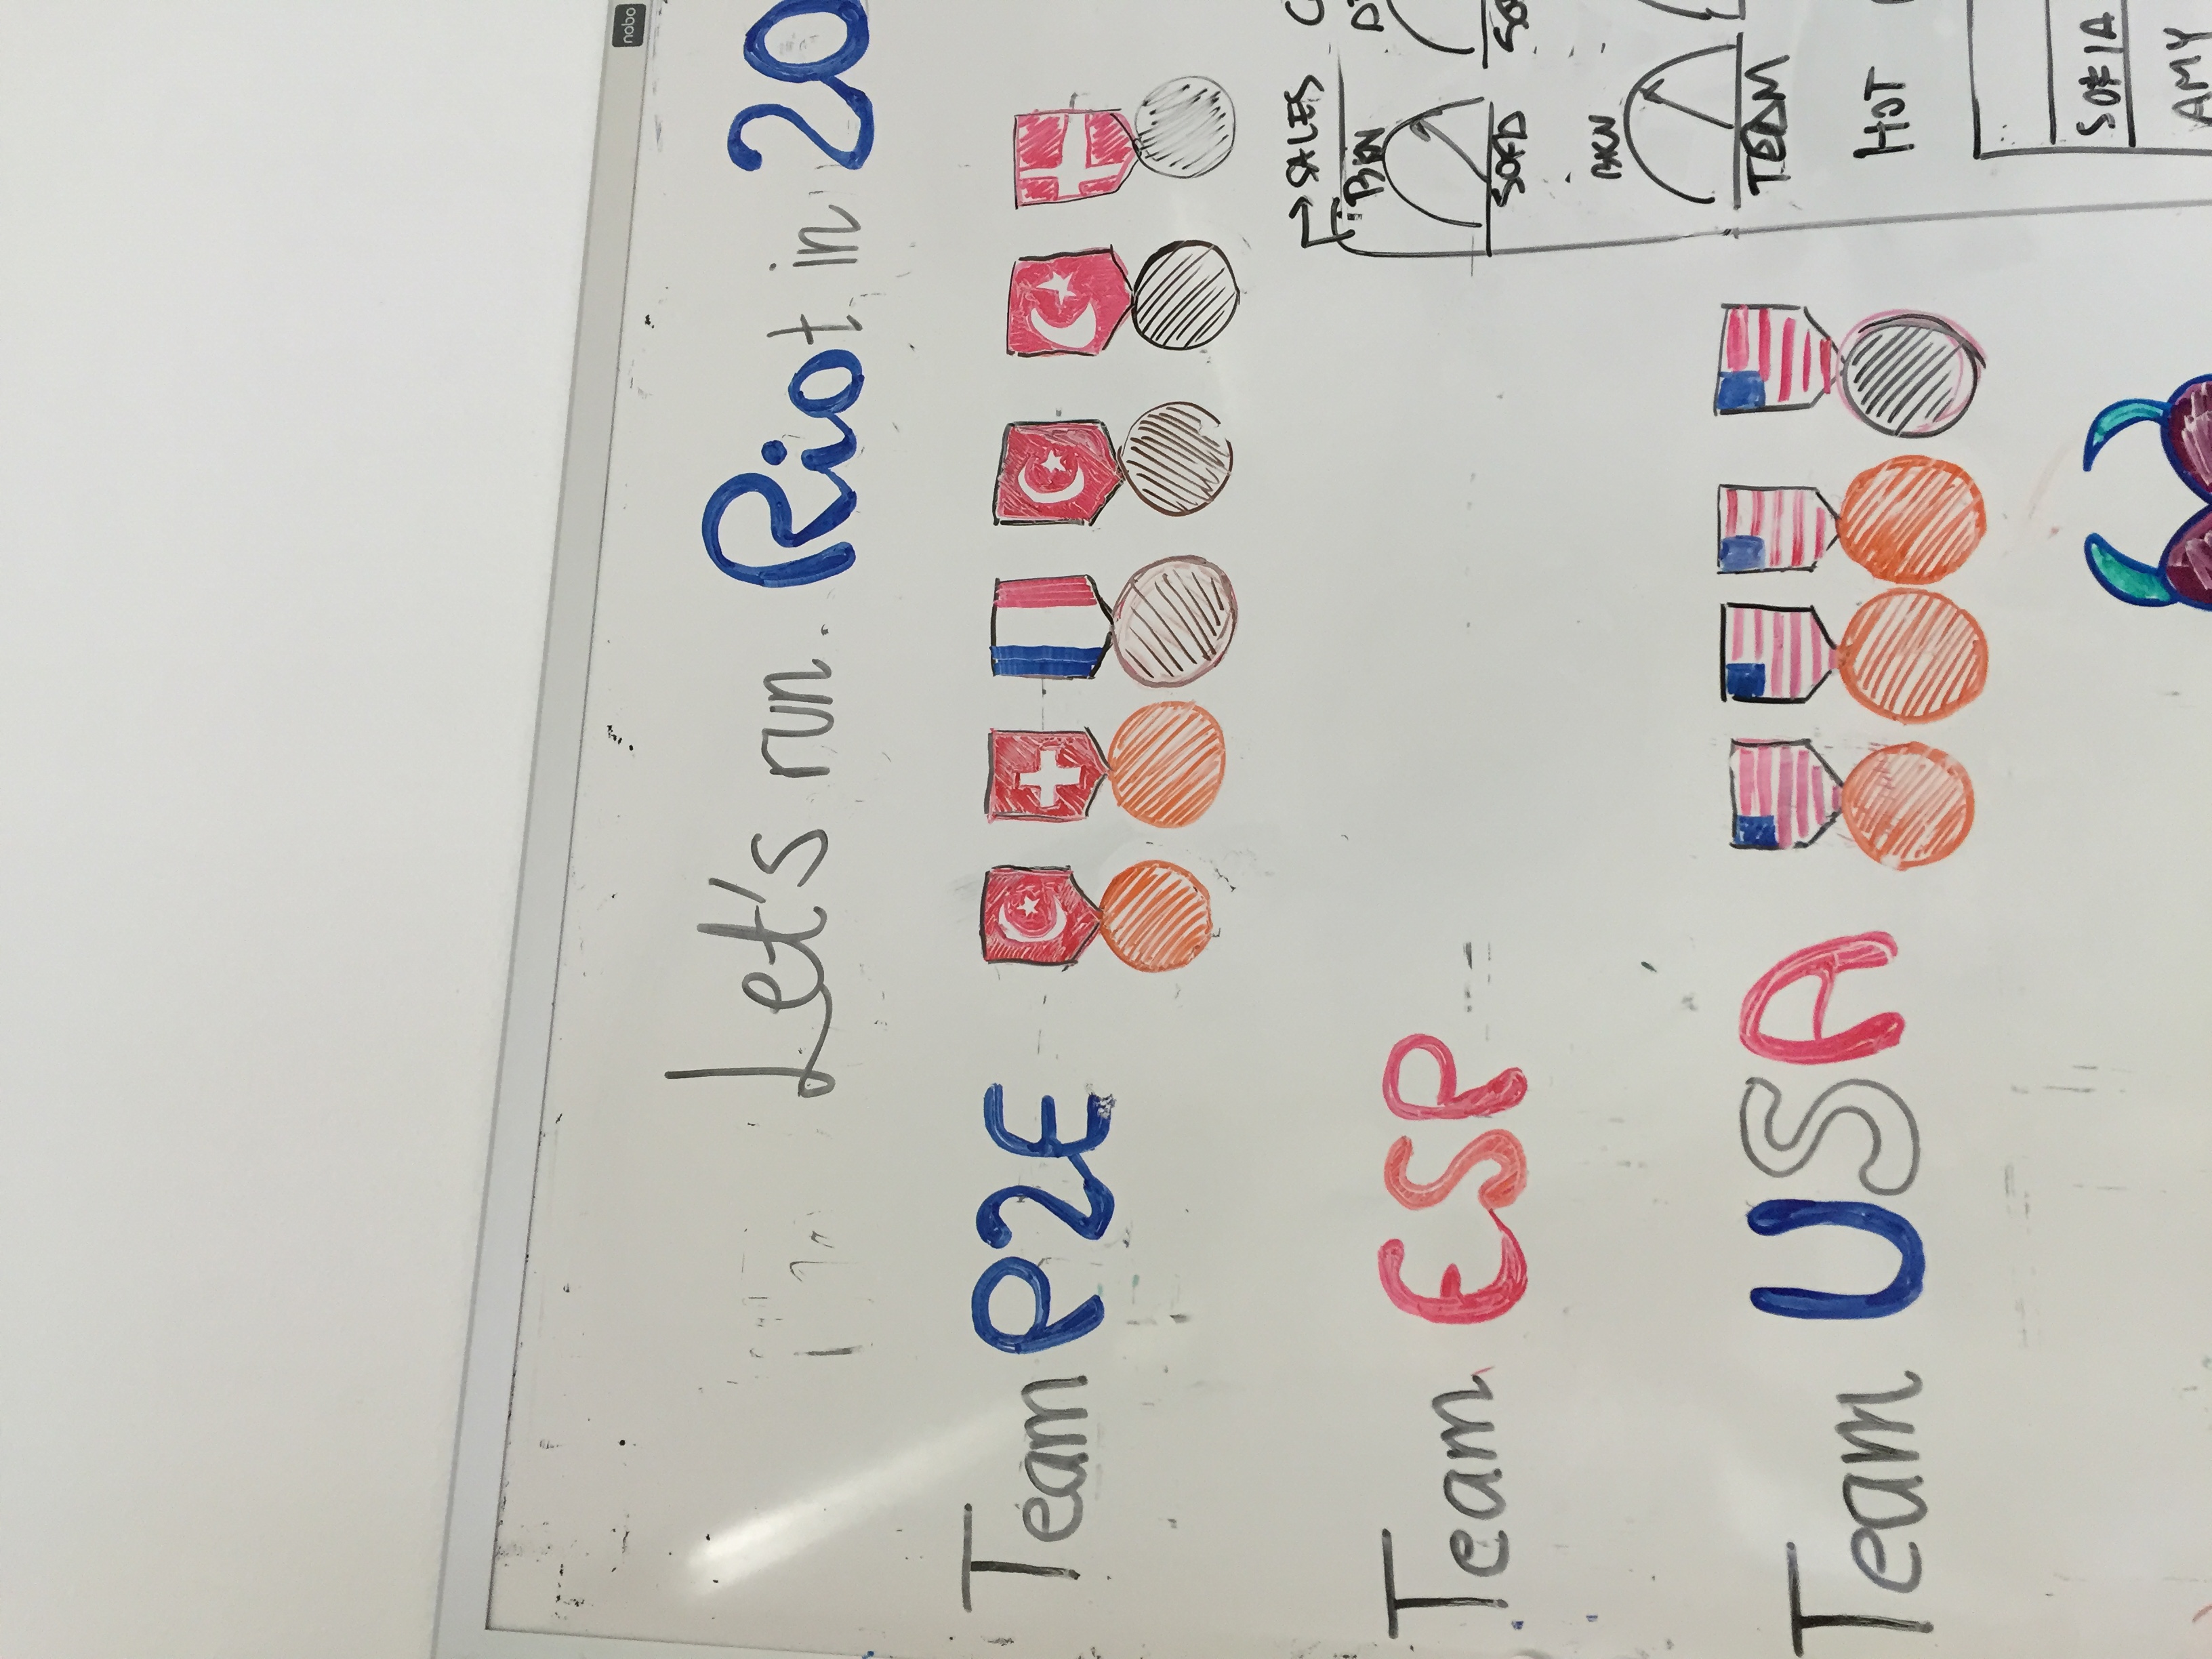 nobo
Let's run. Riot in 20
Team P2E
Team ESP
Team USA
SALES
BKN
SOFD
BKN
TEAM
HOT
SOFIA
AMY